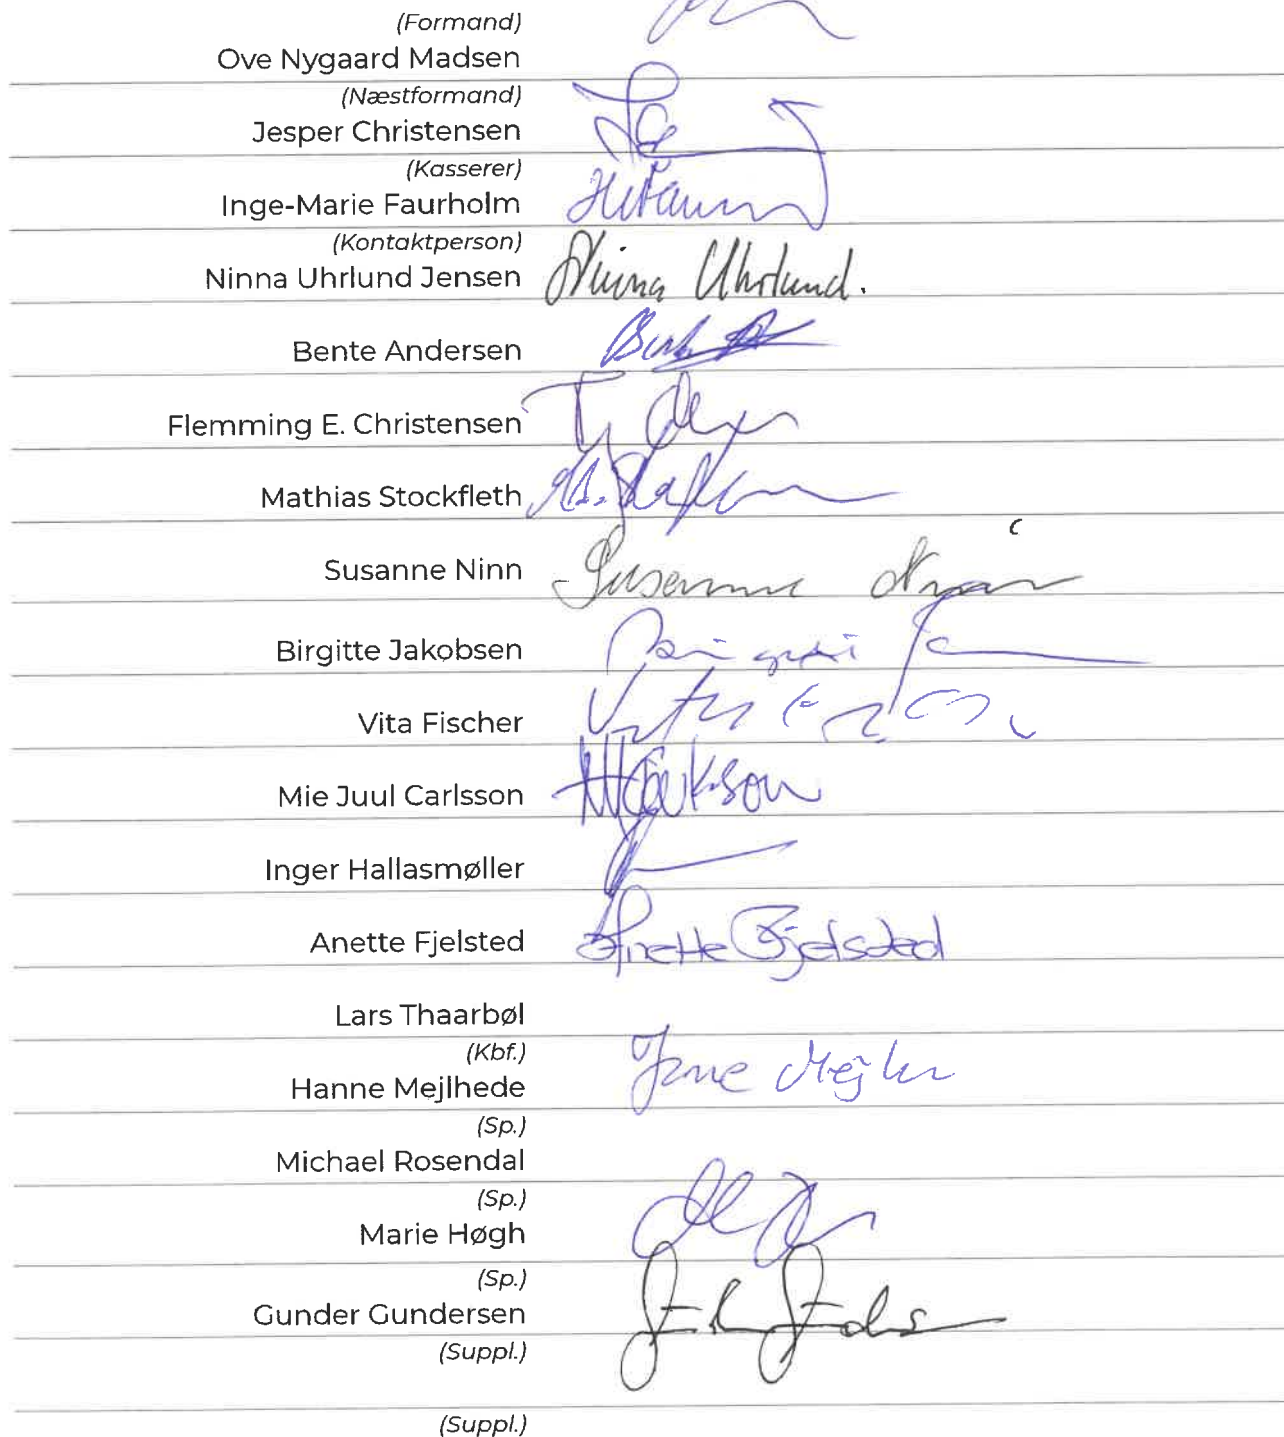 (Formand)
Ove Nygaard Madsen
(Næstformand)
Jesper Christensen
(Kasserer)
Inge-Marie Faurholm
(Kontaktperson)
Ninna Uhrlund Jensen Ninna Uhrlund.
Bente Andersen
Flemming E. Christensen
Mathias Stockfleth
Susanne Ninn Susanne Ninn
Birgitte Jakobsen
Vita Fischer
Mie Juul Carlsson
Inger Hallasmøller
Anette Fjelsted Anette Fjelsted
Lars Thaarbøl
(Kbf.)
Hanne Mejlhede
(Sp.)
Michael Rosendal
(Sp.)
Marie Høgh
(Sp.)
Gunder Gundersen
(Suppl.)
(Suppl.)